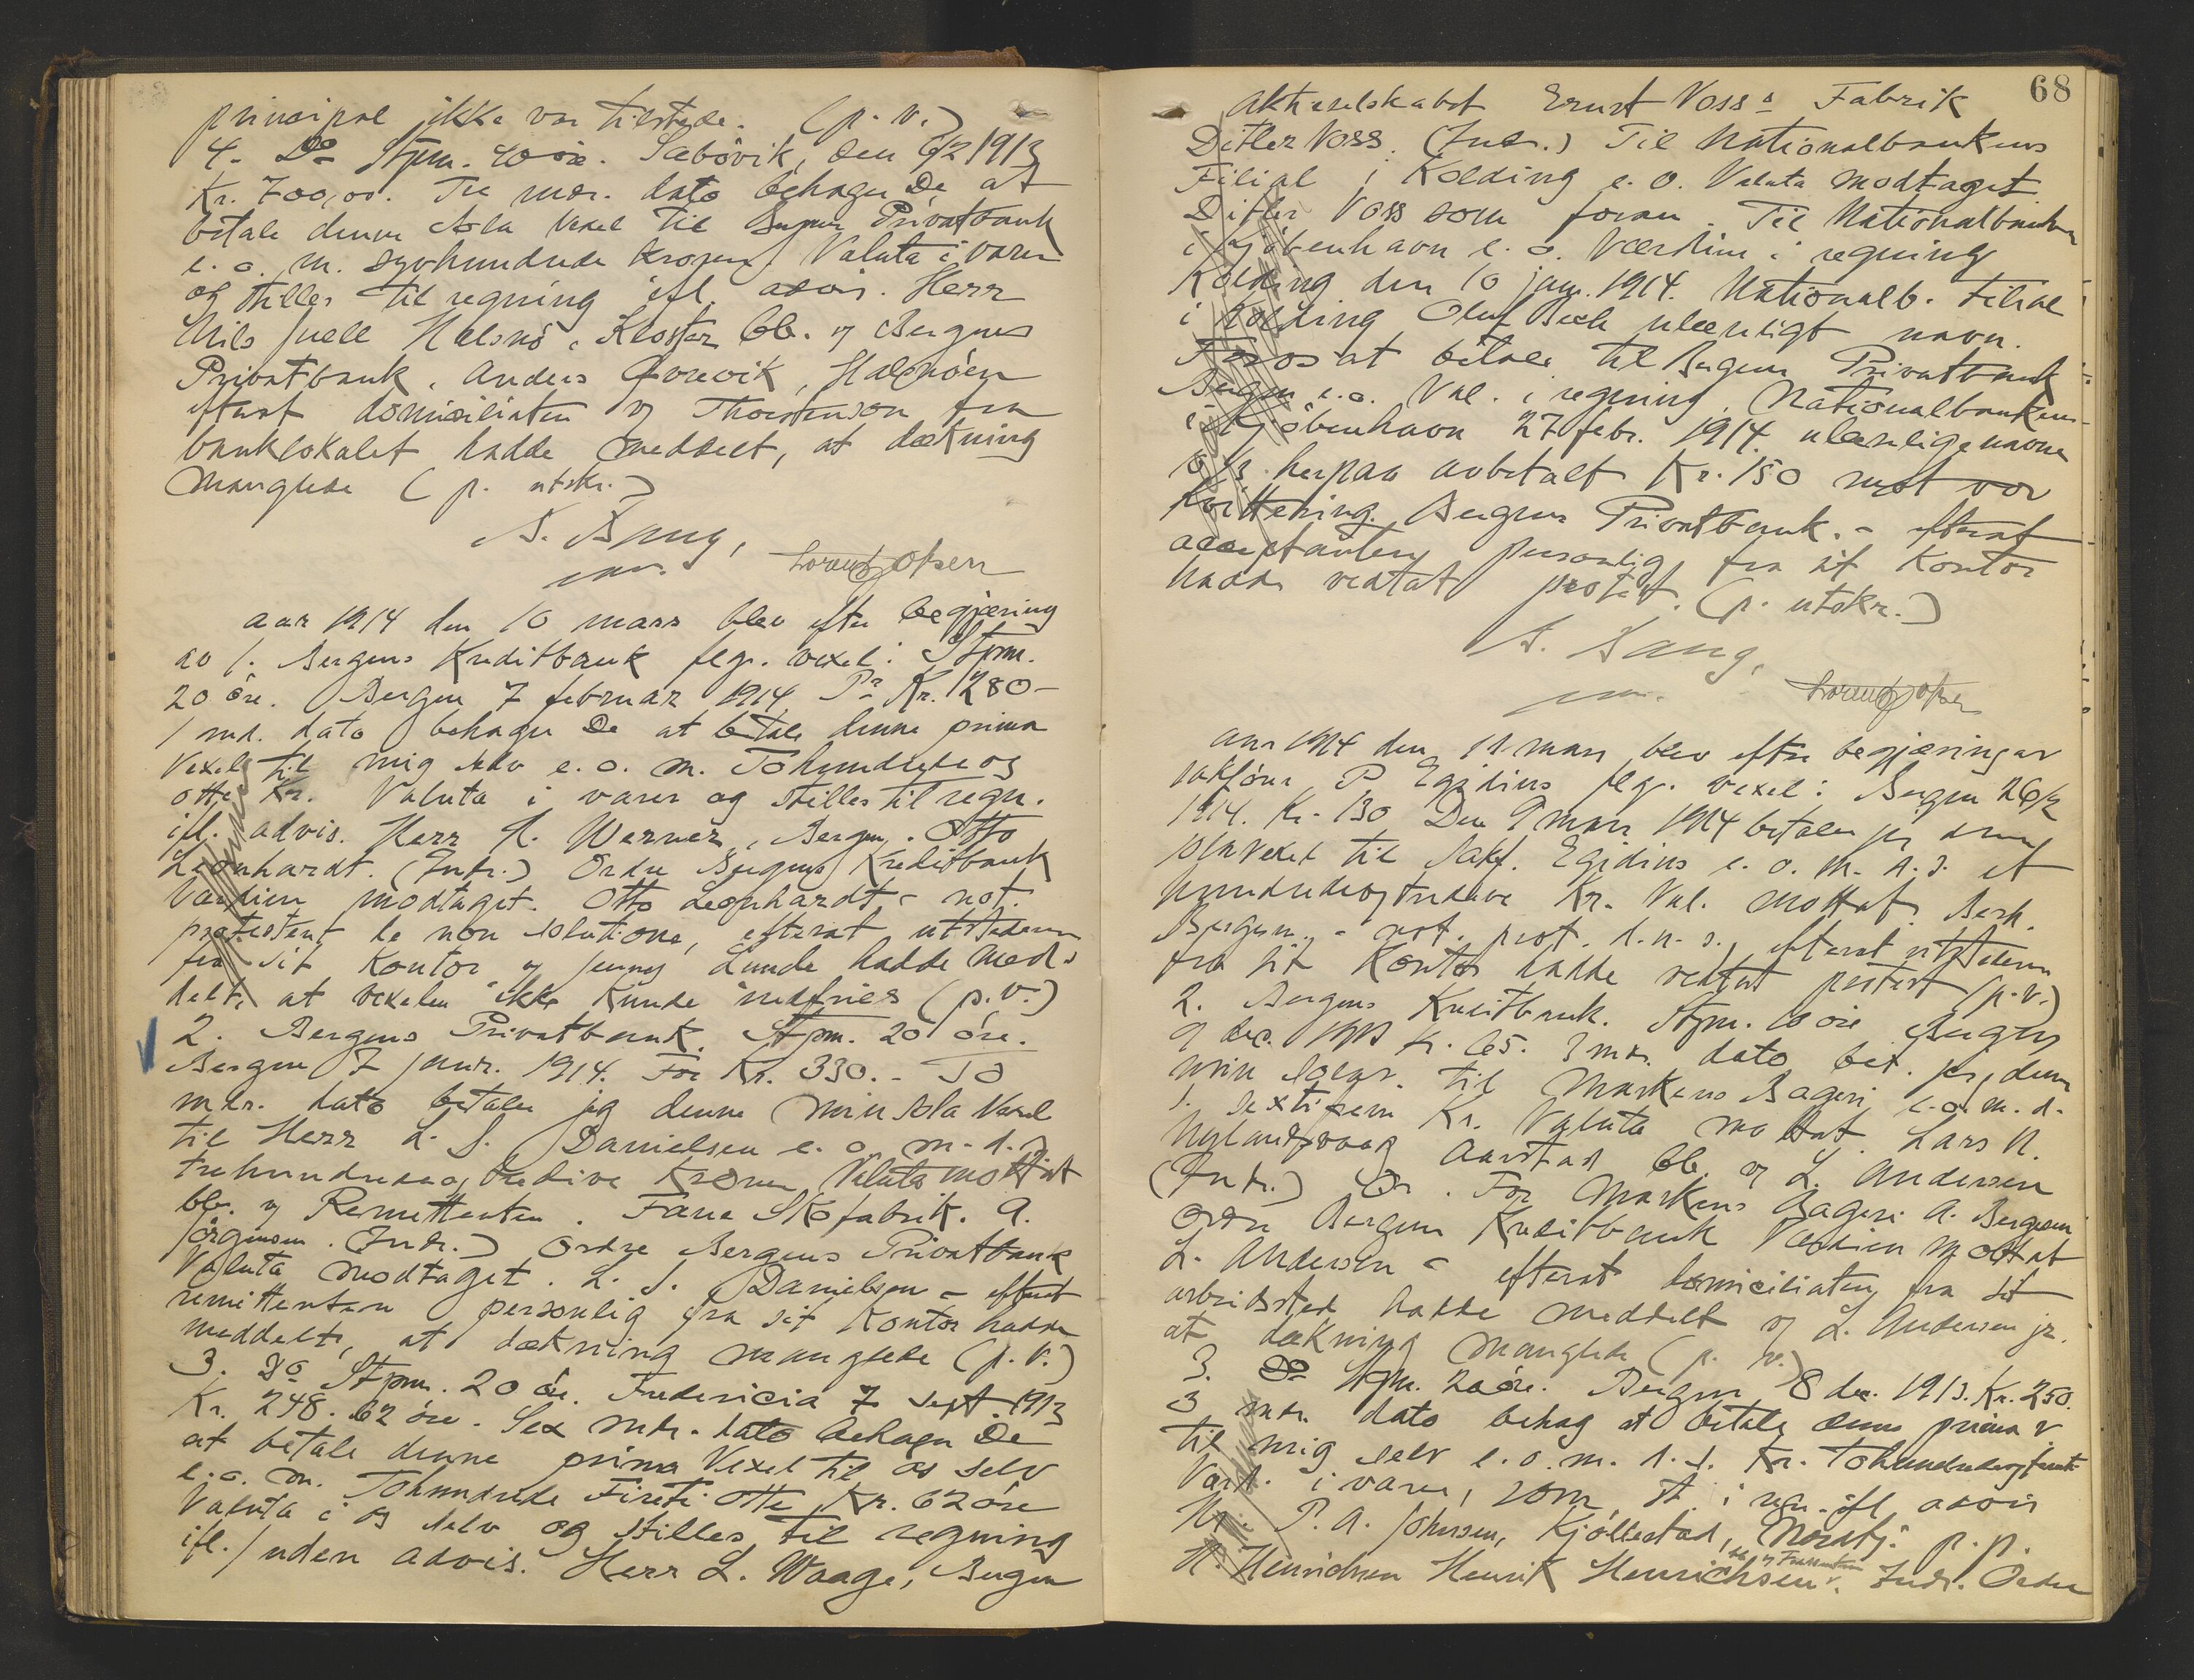 principal ikke var tilstede. (p. v.)
4. Do Stpm. 40 öre. Sæbövik, den 6/2 1913
Kr. 700,00. mdr. dato behager De at
betale denne vexel til Bergens Privatbank
e. o. m. syvhundrede kroner. Valuta i varer
og stilles til regning ifl. advis. Herr
Nils Juell Halsnö Kloster bb. v Bergens
Privatbank. Anders Halsnöen
efterat domiciliaten v Thorstenson fra
banklokalet hadde meddelt, at dækning
manglede (p. utskr.)
A. Bang,
aar 1914 den 10 mars blev efter begjæring
av 1. Bergens Kreditbank flg. vexel: Stpm.
20 öre. Bergen 7 februar 1914. Pr Kr. 280-
1 md. dato behager De at betale denne prima
Vexel til mig selv e. o. m. Tohundrede og
otti Kr. Valuta i varer og stilles til regn.
ifl. advis. Herr A. Werner, Bergen. Otto
Leonhardt. (Indr.) Ordre Bergens Kreditbank
Værdien modtaget. Otto Leonhardt - not.
protestert de non solutione, efterat utstederen
fra sit Kontor v Jenny Lunde hadde med-
delt, at vexelen ikke kunde indfries (p.v.)
2. Bergens Privatbank. Stpm. 20 öre.
Bergen 7 janr. 1914. For Kr. 330.- To
mdr. dato betaler jeg denne min Sola Vexel
til Herr L. J. Danielsen e. o. m. d.
trehundrede og tredive Kroner Valuta mottat
bb. v Remittenten. Fana Skofabrik. A.
Jörgensen. (Indr.) Ordre Bergens Privatbank
Valuta modtaget. L. J. Danielsen - efterat
remittenten personlig fra sit Kontor hadde
meddelt, at dækning manglede (p. v.)
3. Do Stpm. 20 öre. Fredericia 7 Sept 1913
Kr. 248. 62 öre. Sex mdr. dato behager De
at betale denne prima Vexel til os selv
e. o. m. Tohundrede Fireti otte Kr. 62 öre
Valuta i os selv og stilles til regning
ifl./uden advis. Herr L. Waage, Bergen
68
Aktieselskabet Ernst Voss's Fabrik
Ditlev Voss. (Indr.) Til Nationalbankens
Filial i Kolding e. o. Valuta modtaget
Ditlev Voss som foran. Til Nationalbanken
i Kjöbenhavn e. o. Værdien i regning
Kolding den 10 jan. 1914. Nationalb. Filial
i Kolding Oluf Bech ulæseligt navn.
For os at betale til Bergens Privatbank
Bergen e. o. Val. i regning. Nationalbanken
i Kjöbenhavn 27 febr. 1914. ulæselige navne
herpaa avbetalt Kr. 150 mot vor
kvittering. Bergens Privatbank. - efterat
acceptanten personlig fra sit Kontor
hadde vedtat protest. (p. utskr.)
A. Bang,
aar 1914 den 11 mars blev efter begjæring av
sakförer P Egidius flg. vexel: Bergen 26/2
1914. Kr. 130 Den 9 mars 1914 betaler jeg denne
sola vexel til Sakf. Egidius e. o. m. d. s. et
hundrede og tredve Kr. Val. mottat. Bersv.
Bergesen - not. prot. d. n. s., efterat utstederen
fra sit Kontor hadde vedtat protest (p. v.)
2. Bergens Kreditbank. Stpm. 10 öre Bergen
9 dec. 1913 kr. 65. 3 mdr. dato bet. jeg denne
min til Markens Bageri e. o. m. d.
s. sextifem Kr. Valuta mottat. Lars N.
Aarstad bb. v L. Andersen
(Indr.) For Markens Bageri A. Bergesen
Ordre Bergens Kreditbank Værdien Mottat
L. Andersen - efterat domiciliaten fra sit
arbeidssted hadde meddelt v L. Andersen jr.
at dækning manglede (p. v.)
3. Do Stpm. 20 öre. Bergen 8 dec. 1913. Kr. 250.
3 mdr. dato behag at betale denne prima v
til mig selv e. o. m. d. s. Kr. Tohundredeogfemti
Værd. i varer, som st. i regn. ifl advis
Hr. P. A. Johnsen, Kjöllestad, p. p.
H. Henrichsen Henrik Henrichsen. Indr. Ordre